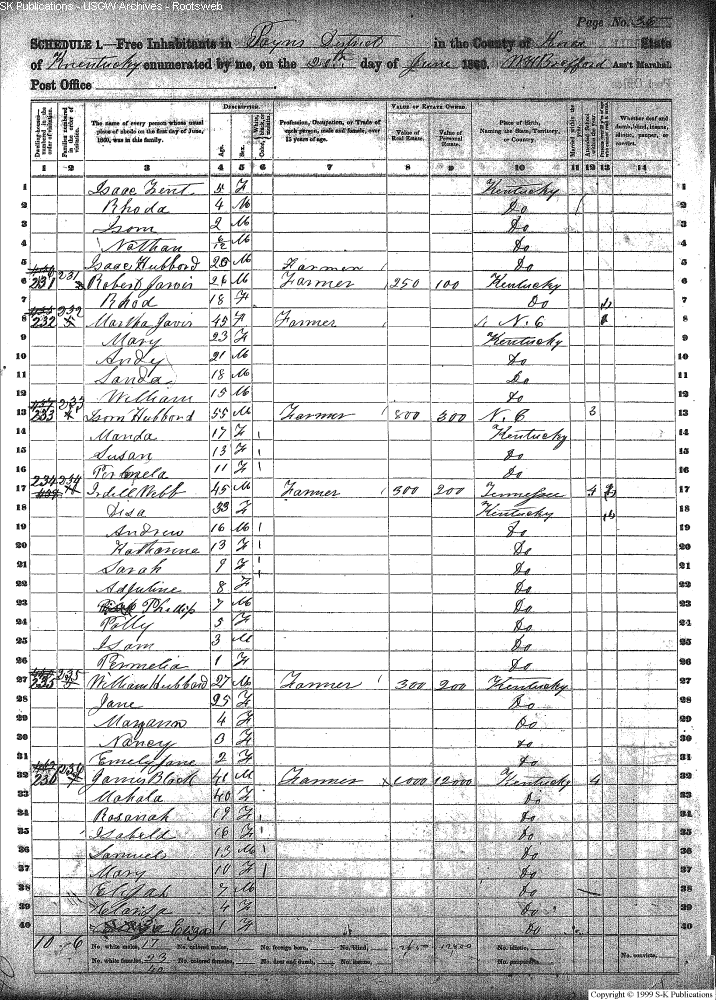 SK Publications - USGW Archives - Rootsweb
Page No. 36
SCHEDULE 1.—Free Inhabitants in Payns District in the County of Knox State
of Knentucky enumerated by me, on the 20th day of June 1860. Ass't Marshal.
Post Office
Dwelling-houses—numbered in the order of visitation. Families numbered in the order of visitation. The name of every person whose usual place of abode on the first day of June, 1860, was in this family. DESCRIPTION. Age. Sex. Color, White, black, or mulatto. Profession, Occupation, or Trade of each person, male and female, over 15 years of age. VALUE OF ESTATE OWNED. Value of Real Estate. Value of Personal Estate. Place of Birth, Naming the State, Territory, or Country. Married within the year. Attended School within the year. Whether deaf and dumb, blind, insane, idiotic, pauper, or convict.
1 2 3 4 5 6 7 8 9 10 11 12 13 14
1 Isaac 4 Kentucky 1
2 Rhoda 4 M Do 2
3 Isom 2 M Do 3
4 Nathan M Do 4
5 Isaac Hubbord 25 M Farmer Do 5
6 231 231 Robert Jarvis 26 M Farmer 250 100 Kentucky 6
7 Rhod 18 F Do 7
8 232 232 Martha Javis 45 F Farmer N. C 8
9 Mary 23 F Kentucky 9
10 Andy 21 M Do 10
11 Sanda 18 M Do 11
12 William 15 M Do 12
13 233 233 Isom Hubbord 55 M Farmer 800 300 N. C 3 13
14 Manda 17 F Kentucky 14
15 Susan 13 F Do 15
16 11 F Do 16
17 234 234 Irdell Webb 45 M Farmer 300 200 Tennessee 4 17
18 Disa 33 F Kentucky 18
19 Andrew 16 M Do 19
20 Katharine 13 F Do 20
21 Sarah 9 F Do 21
22 Adpuline 8 F Do 22
23 Phillip 7 M Do 23
24 Polly 5 F Do 24
25 Isom 3 M Do 25
26 Permelia 1 F Do 26
27 235 235 William Hubbard 27 M Farmer 300 200 Kentucky 27
28 Jane 25 F Do 28
29 4 F Do 29
30 Nancy 3 F Do 30
31 Emely Jane 2 F Do 31
32 236 236 James Black 41 M Farmer 1000 12000 Kentucky 4 32
33 Mahala 40 F Do 33
34 Rosanah 19 F Do 34
35 Isabeld 16 F Do 35
36 Samuel 13 M Do 36
37 Mary 10 F Do 37
38 Elijah 7 M Do 38
39 Clarisa 4 F Do 39
40 Eliza 1 F Do 40
10 - 6 No. white males, 17 No. colored males, No. foreign born, No. blind, No. idiotic,
No. white females, 23 No. colored females, No. deaf and dumb, No. insane, No. paupers, No. convicts,
40
Copyright © 1999 S-K Publications